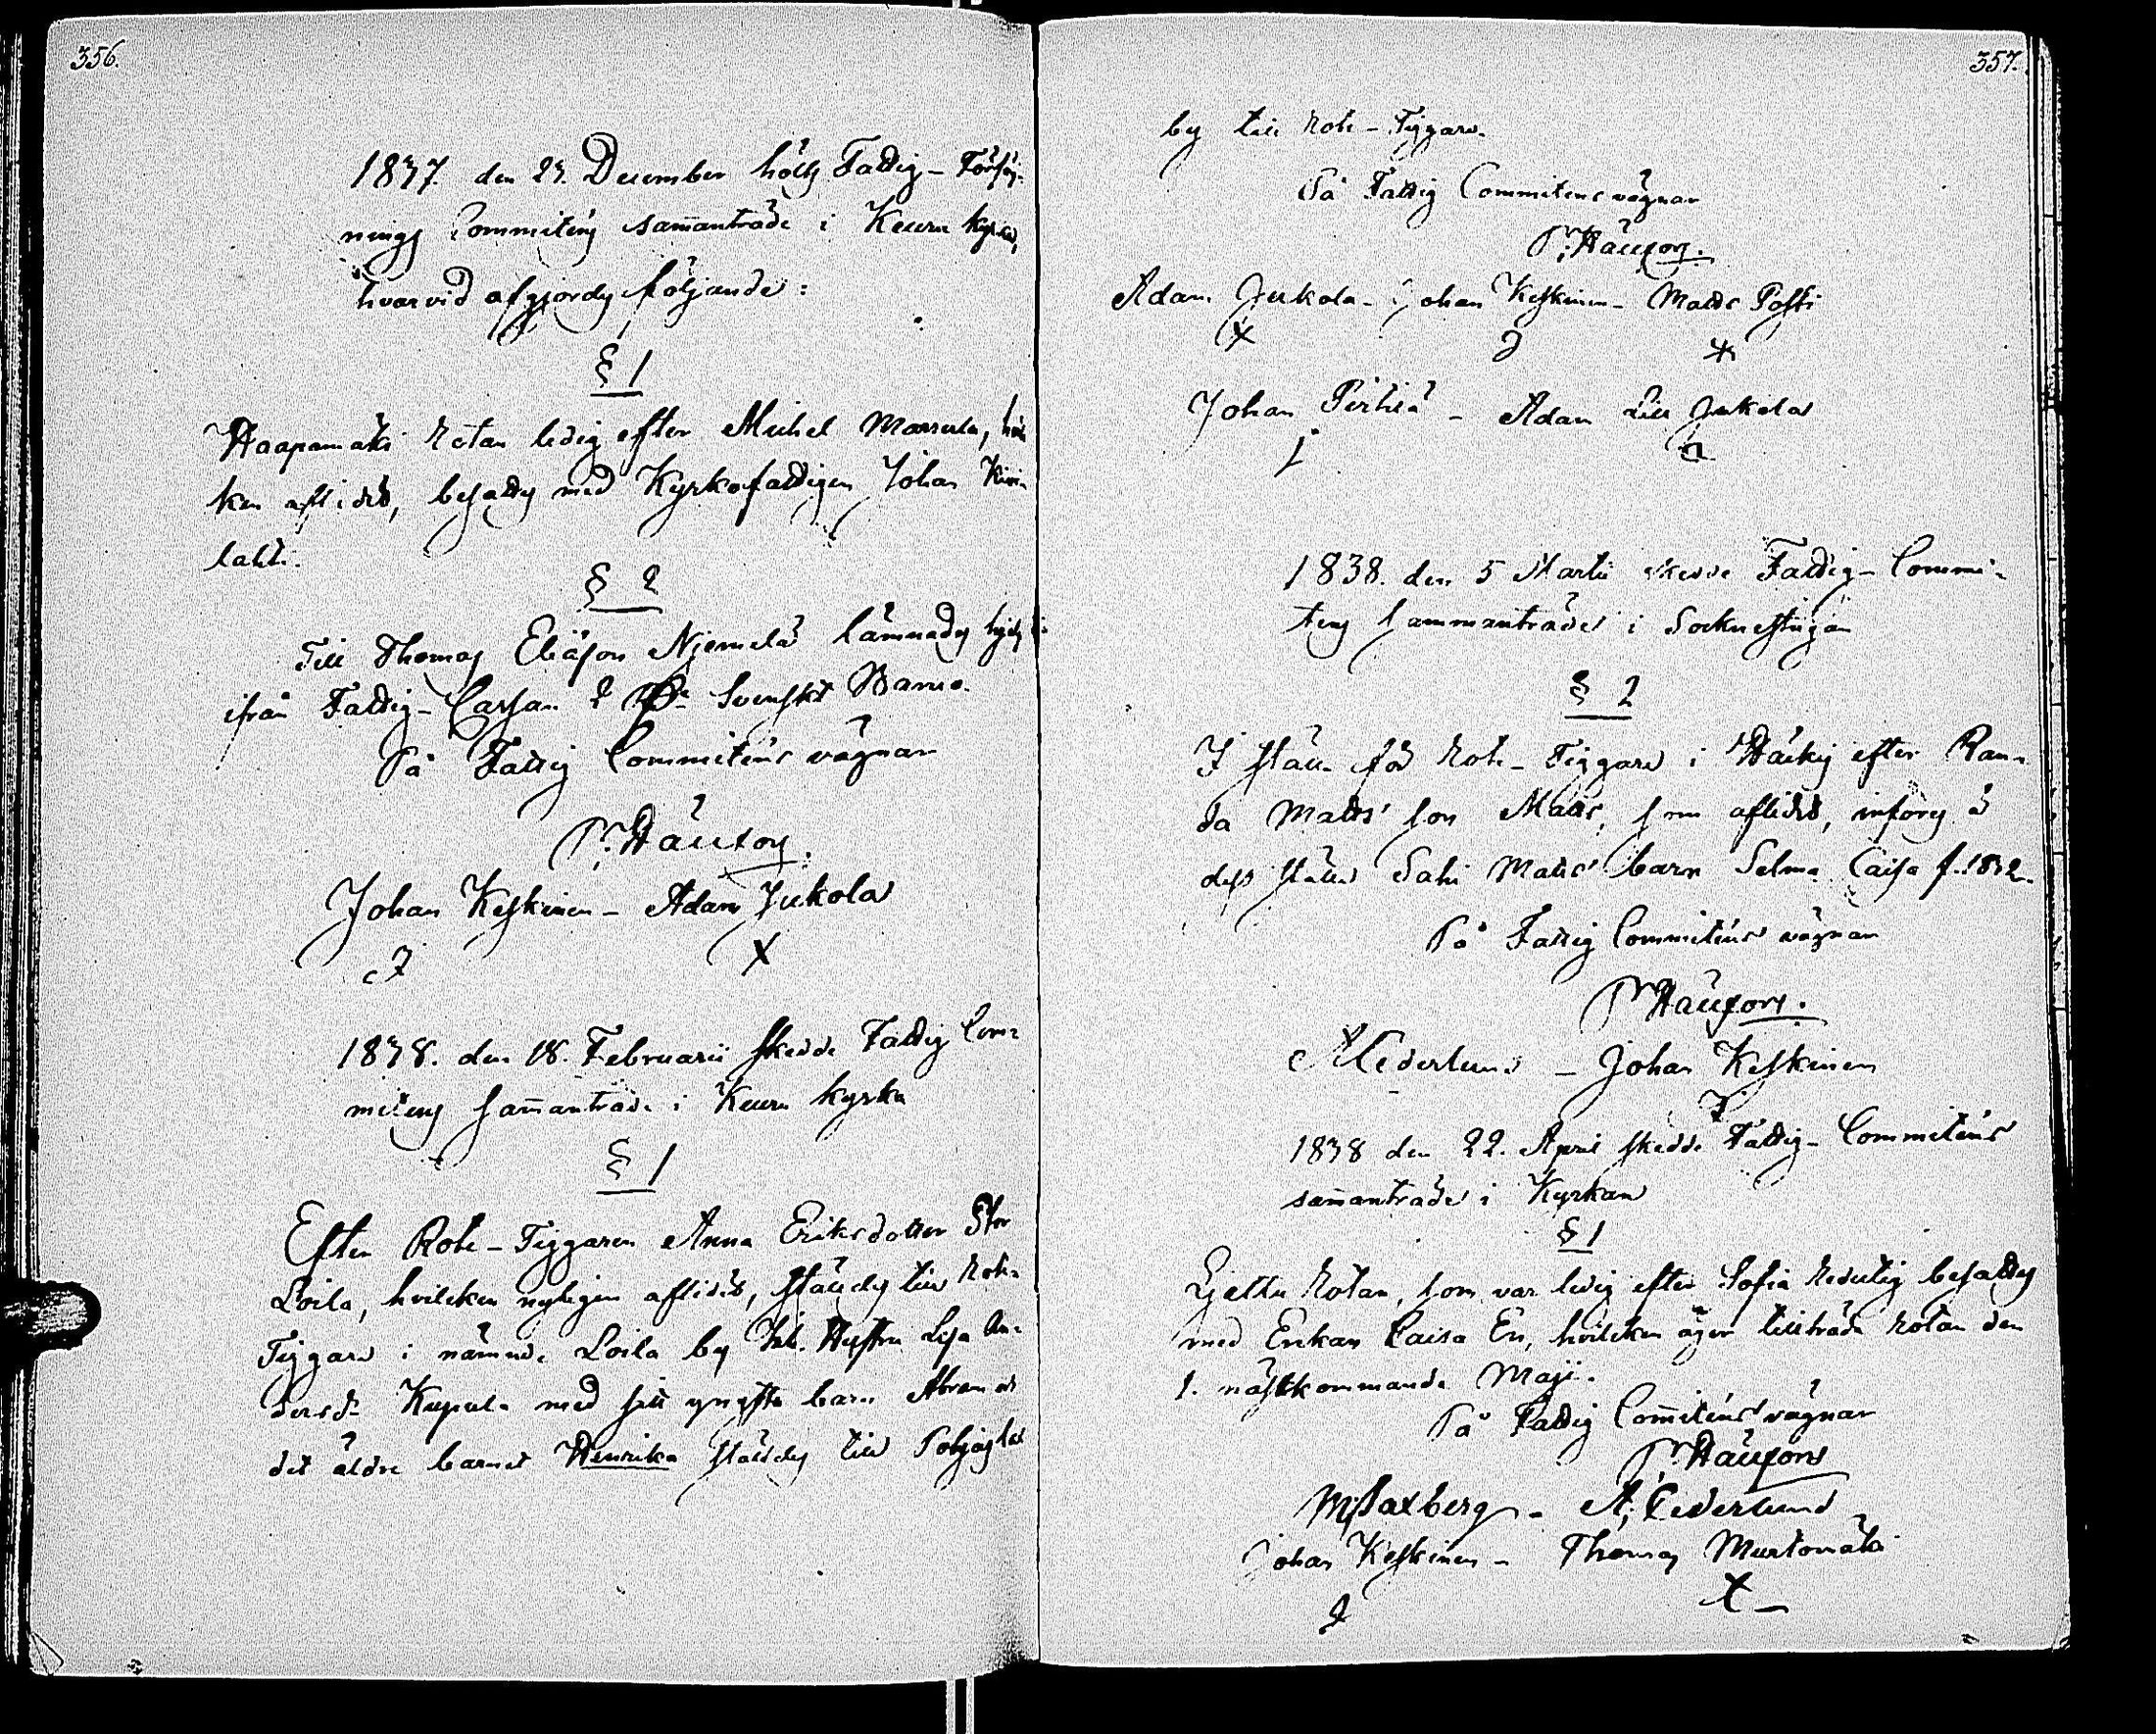 356.
1837. den 27. December hölls Fattig-Försörj-
nings Commiténs sam̄anträde i Keuru kyrka,
hvarvid afgjordes följande:
§ 1
Haapamäki Rotan ledig efter Michel Massula, hvil
ken aflidit, besattes med Kyrkofattigen Johan Kivi-
lahti.
§ 2
Till Thomas Eliäson Niemelä lämnades
ifrån Fattig-Cassan 2 Svenskt Banco.
På Fattig Committéns vägnar
Johan Keskinen - Adam Jukola
X
1838. den 18. Februarii skedde Fattig Com-
miténs sam̄anträde i Keuru kyrka
§ 1
Efter Rote-Tiggaren Anna Eriksdotter Stor
Loila, hvilcken nyligen aflidit, ställdes till Rote-
Tiggare i nämnde Loila by Hustru Lisa An-
dersd. med sitt yngsta barn Abram och
det äldre barnet Henrika ställdes till Pohjoislax
357.
by till Rote-Tiggare.
På Fattig Commitens vägnar
Adam Jukola - Johan Keskinen - Matts Possi
X
Johan Perheä - Adam Lill Jukola
1838. den 5 Martii skedde Fattig-Commi-
téns sammanträde i Sockenstugan
§ 2
I stället för Rote-Tiggare i Häkis efter Ran-
da Matts' son Matts, som aflidit, införes i
dess ställe Sahi Matts' barn Selma Caisa f. 1832.
På Fattig Commiténs vägnar
A Cederlund - Johan Keskinen
1838 den 22. April skedde Fattig-Commiténs
sam̄anträde i Kyrkan
§ 1
Rotan, som var ledig efter Sofia besattes
med Enkan Caisa En, hvilcken äger tillträda Rotan den
1. nästkommande Maji.
På Fattig Com̄iténs vägnar
M Saxberg - A. Cederlund
Johan Keskinen - Thomas Murtomäki
X